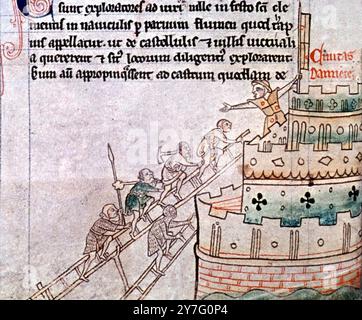 sunt exploratores ad iuxta nillu in festo sci cle
mentis in nauiculis per paruum fluuium quod tapnis
appellatur. ut de castellulis & uillis uictuali
a quererent & situm locorum diligenter explorarent.
Cum autem appropinquassent ad castrum quoddam de
Ciuitas
Damiete
alamy
Image ID: 2Y7G0P4
www.alamy.com